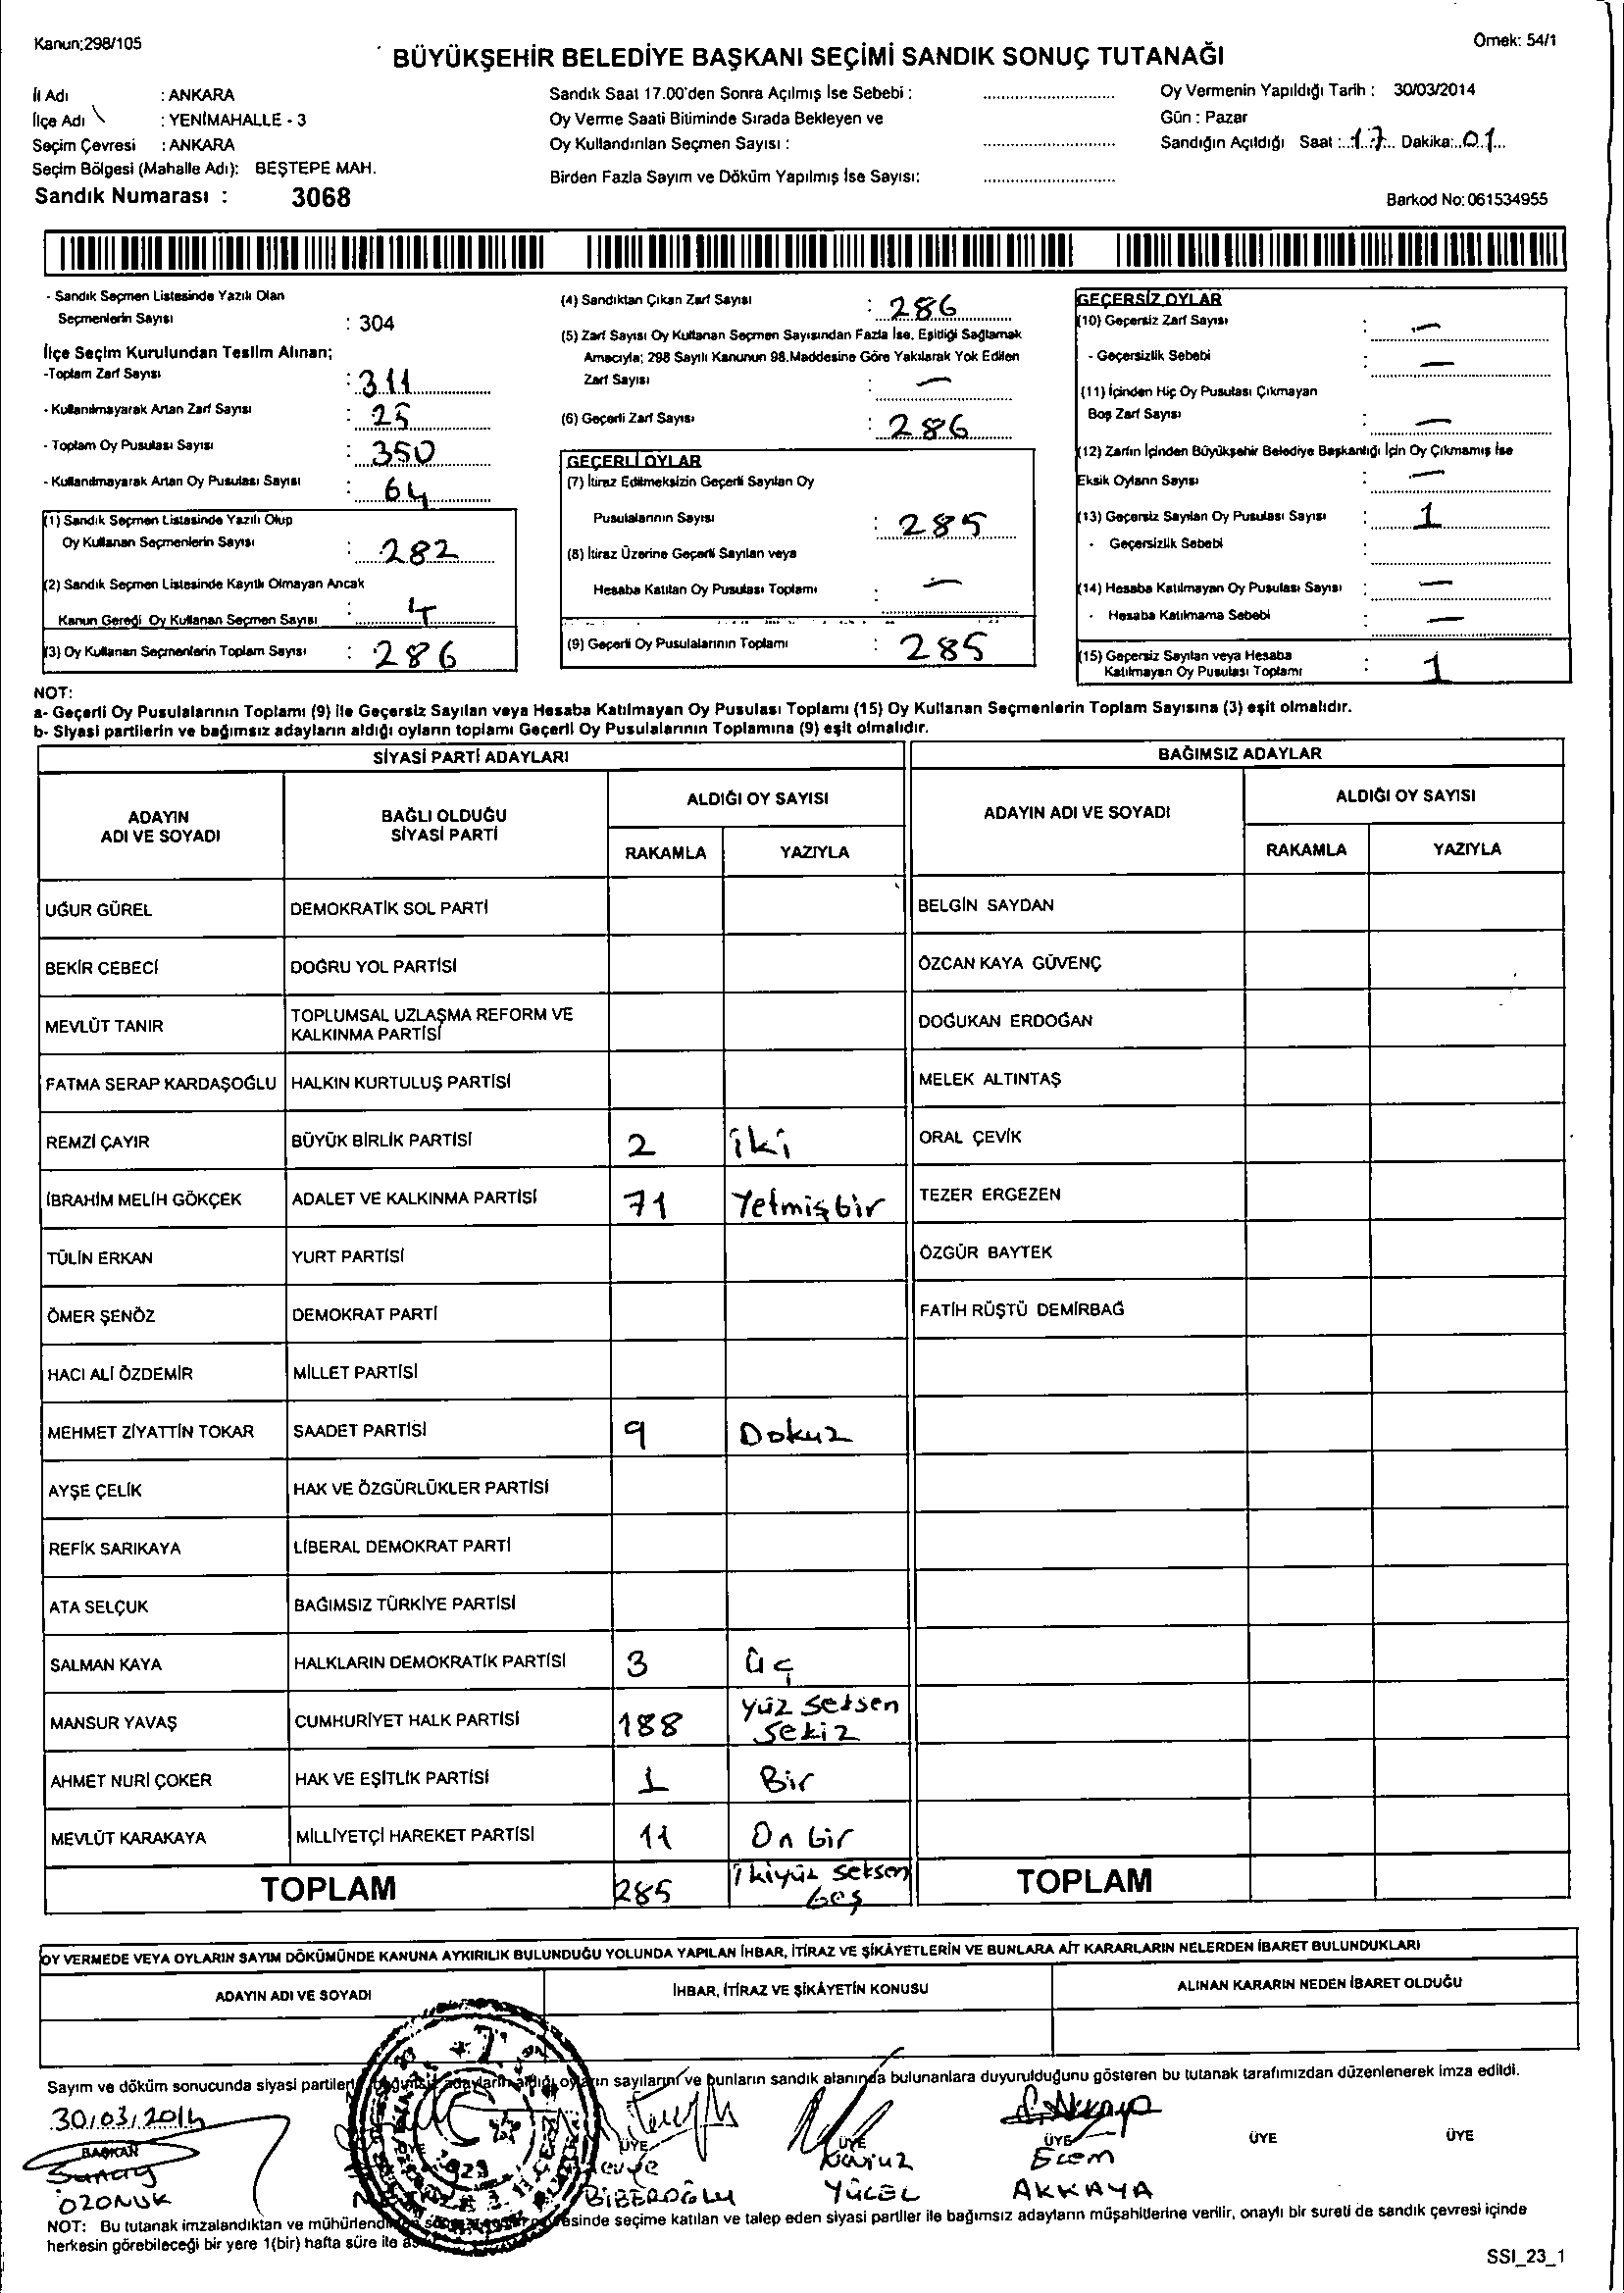 Kanun;298/105
Örnek: 54/1
BÜYÜKŞEHİR BELEDİYE BAŞKANI SEÇİMİ SANDIK SONUÇ TUTANAĞI
İl Adı : ANKARA
İlçe Adı : YENİMAHALLE - 3
Seçim Çevresi : ANKARA
Seçim Bölgesi (Mahalle Adı): BEŞTEPE MAH.
Sandık Numarası : 3068
Sandık Saat 17.00'den Sonra Açılmış İse Sebebi :
Oy Verme Saati Bitiminde Sırada Bekleyen ve
Oy Kullandırılan Seçmen Sayısı :
Birden Fazla Sayım ve Döküm Yapılmış İse Sayısı:
Oy Vermenin Yapıldığı Tarih : 30/03/2014
Gün : Pazar
Sandığın Açıldığı Saat : 17 Dakika: 01
Barkod No: 061534955
- Sandık Seçmen Listesinde Yazılı Olan
Seçmenlerin Sayısı : 304
İlçe Seçim Kurulundan Teslim Alınan;
-Toplam Zarf Sayısı : 311
- Kullanılmayarak Artan Zarf Sayısı : 25
- Toplam Oy Pusulası Sayısı : 350
- Kullanılmayarak Artan Oy Pusulası Sayısı : 64
(1) Sandık Seçmen Listesinde Yazılı Olup
Oy Kullanan Seçmenlerin Sayısı : 282
(2) Sandık Seçmen Listesinde Kayıtlı Olmayan Ancak
Kanun Gereği Oy Kullanan Seçmen Sayısı : 4
(3) Oy Kullanan Seçmenlerin Toplam Sayısı : 286
(4) Sandıktan Çıkan Zarf Sayısı : 286
(5) Zarf Sayısı Oy Kullanan Seçmen Sayısından Fazla İse, Eşitliği Sağlamak
Amacıyla; 298 Sayılı Kanunun 98.Maddesine Göre Yakılarak Yok Edilen
Zarf Sayısı : —
(6) Geçerli Zarf Sayısı : 286
GEÇERLİ OYLAR
(7) İtiraz Edilmeksizin Geçerli Sayılan Oy
Pusulalarının Sayısı : 285
(8) İtiraz Üzerine Geçerli Sayılan veya
Hesaba Katılan Oy Pusulası Toplamı : —
(9) Geçerli Oy Pusulalarının Toplamı : 285
GEÇERSİZ OYLAR
(10) Geçersiz Zarf Sayısı : —
- Geçersizlik Sebebi : —
(11) İçinden Hiç Oy Pusulası Çıkmayan
Boş Zarf Sayısı : —
(12) Zarfın İçinden Büyükşehir Belediye Başkanlığı İçin Oy Çıkmamış İse
Eksik Oyların Sayısı : —
(13) Geçersiz Sayılan Oy Pusulası Sayısı : 1
- Geçersizlik Sebebi :
(14) Hesaba Katılmayan Oy Pusulası Sayısı : —
- Hesaba Katılmama Sebebi : —
(15) Geçersiz Sayılan veya Hesaba
Katılmayan Oy Pusulası Toplamı : 1
NOT:
a- Geçerli Oy Pusulalarının Toplamı (9) ile Geçersiz Sayılan veya Hesaba Katılmayan Oy Pusulası Toplamı (15) Oy Kullanan Seçmenlerin Toplam Sayısına (3) eşit olmalıdır.
b- Siyasi partilerin ve bağımsız adayların aldığı oyların toplamı Geçerli Oy Pusulalarının Toplamına (9) eşit olmalıdır.
SİYASİ PARTİ ADAYLARI BAĞIMSIZ ADAYLAR
ADAYIN ADI VE SOYADI BAĞLI OLDUĞU SİYASİ PARTİ ALDIĞI OY SAYISI ADAYIN ADI VE SOYADI ALDIĞI OY SAYISI
RAKAMLA YAZIYLA RAKAMLA YAZIYLA
UĞUR GÜREL DEMOKRATİK SOL PARTİ BELGİN SAYDAN
BEKİR CEBECİ DOĞRU YOL PARTİSİ ÖZCAN KAYA GÜVENÇ
MEVLÜT TANIR TOPLUMSAL UZLAŞMA REFORM VE KALKINMA PARTİSİ DOĞUKAN ERDOĞAN
FATMA SERAP KARDAŞOĞLU HALKIN KURTULUŞ PARTİSİ MELEK ALTINTAŞ
REMZİ ÇAYIR BÜYÜK BİRLİK PARTİSİ 2 iki ORAL ÇEVİK
İBRAHİM MELİH GÖKÇEK ADALET VE KALKINMA PARTİSİ 71 Yetmişbir TEZER ERGEZEN
TÜLİN ERKAN YURT PARTİSİ ÖZGÜR BAYTEK
ÖMER ŞENÖZ DEMOKRAT PARTİ FATİH RÜŞTÜ DEMİRBAĞ
HACI ALİ ÖZDEMİR MİLLET PARTİSİ
MEHMET ZİYATTİN TOKAR SAADET PARTİSİ 9 Dokuz
AYŞE ÇELİK HAK VE ÖZGÜRLÜKLER PARTİSİ
REFİK SARIKAYA LİBERAL DEMOKRAT PARTİ
ATA SELÇUK BAĞIMSIZ TÜRKİYE PARTİSİ
SALMAN KAYA HALKLARIN DEMOKRATİK PARTİSİ 3 üç
MANSUR YAVAŞ CUMHURİYET HALK PARTİSİ 188 Yüz seksen sekiz
AHMET NURİ ÇOKER HAK VE EŞİTLİK PARTİSİ 1 Bir
MEVLÜT KARAKAYA MİLLİYETÇİ HAREKET PARTİSİ 11 On bir
TOPLAM 285 ikiyüz seksen beş TOPLAM
OY VERMEDE VEYA OYLARIN SAYIM DÖKÜMÜNDE KANUNA AYKIRILIK BULUNDUĞU YOLUNDA YAPILAN İHBAR, İTİRAZ VE ŞİKÂYETLERİN VE BUNLARA AİT KARARLARIN NELERDEN İBARET BULUNDUKLARI
ADAYIN ADI VE SOYADI İHBAR, İTİRAZ VE ŞİKÂYETİN KONUSU ALINAN KARARIN NEDEN İBARET OLDUĞU
Sayım ve döküm sonucunda siyasi partilerin bağımsız adayların aldığı oyların sayılarını ve bunların sandık alanında bulunanlara duyurulduğunu gösteren bu tutanak tarafımızdan düzenlenerek imza edildi.
30/03/2014
BAŞKAN ÜYE ÜYE ÜYE ÜYE ÜYE ÜYE
Yavuz Ecem
BİBEROĞLU YÜCEL AKKAYA
NOT: Bu tutanak imzalandıktan ve mühürlendi seçime katılan ve talep eden siyasi partiler ile bağımsız adayların müşahitlerine verilir, onaylı bir sureti de sandık çevresi içinde
herkesin görebileceği bir yere 1(bir) hafta süre ile
SSI_23_1